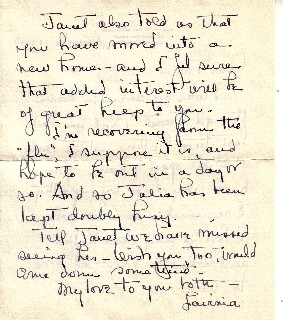 Janet also told us that
you have moved into a
new home - and I feel sure
that added interest will be
of great help to you.
I'm recovering from the
"flu", I suppose it is, and
hope to be out in a day or
so. And so Julia has been
kept doubly busy.
Tell Janet we have missed
seeing her - Wish you, too, would
come down sometime -
My love to you both -